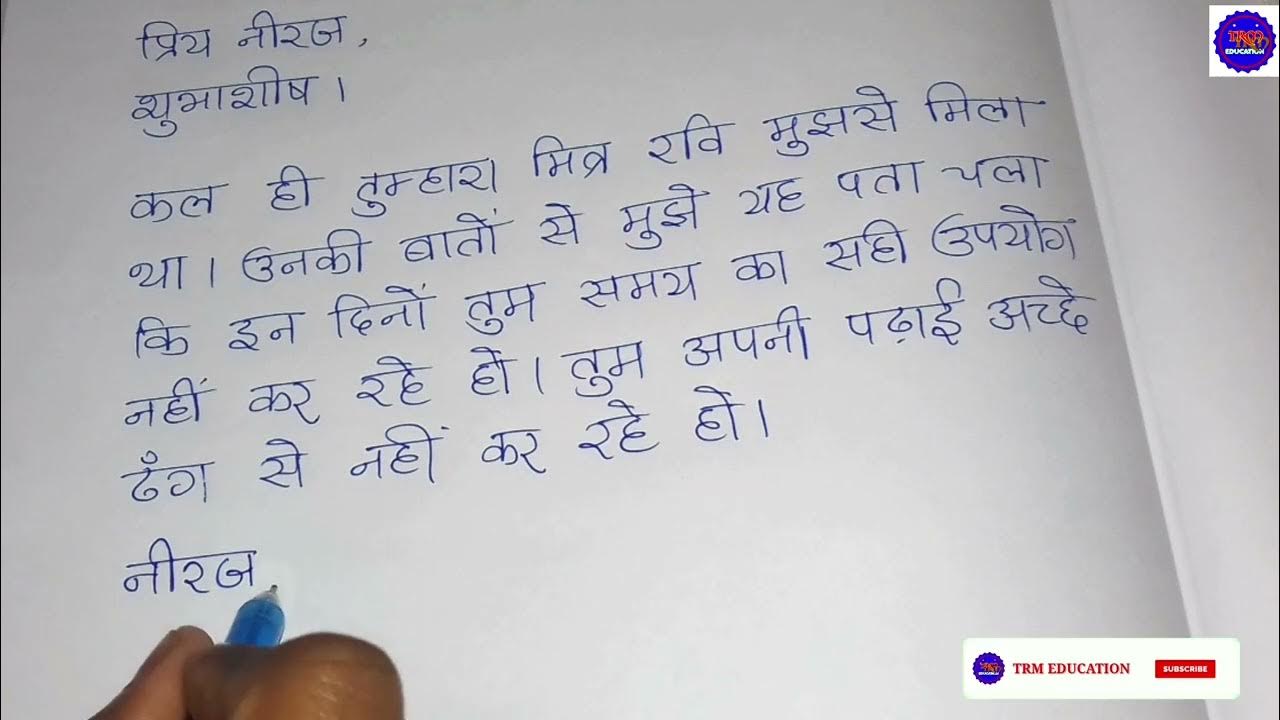 प्रिय नीरज,
शुभाशीष।
कल ही तुम्हारा मित्र रवि मुझसे मिला
था। उनकी बातों से मुझे यह पता चला
कि इन दिनों तुम समय का सही उपयोग
नहीं कर रहे हो। तुम अपनी पढ़ाई अच्छे
ढँग से नहीं कर रहे हो।
नीरज,
TRM
EDUCATION
TRM EDUCATION
SUBSCRIBE